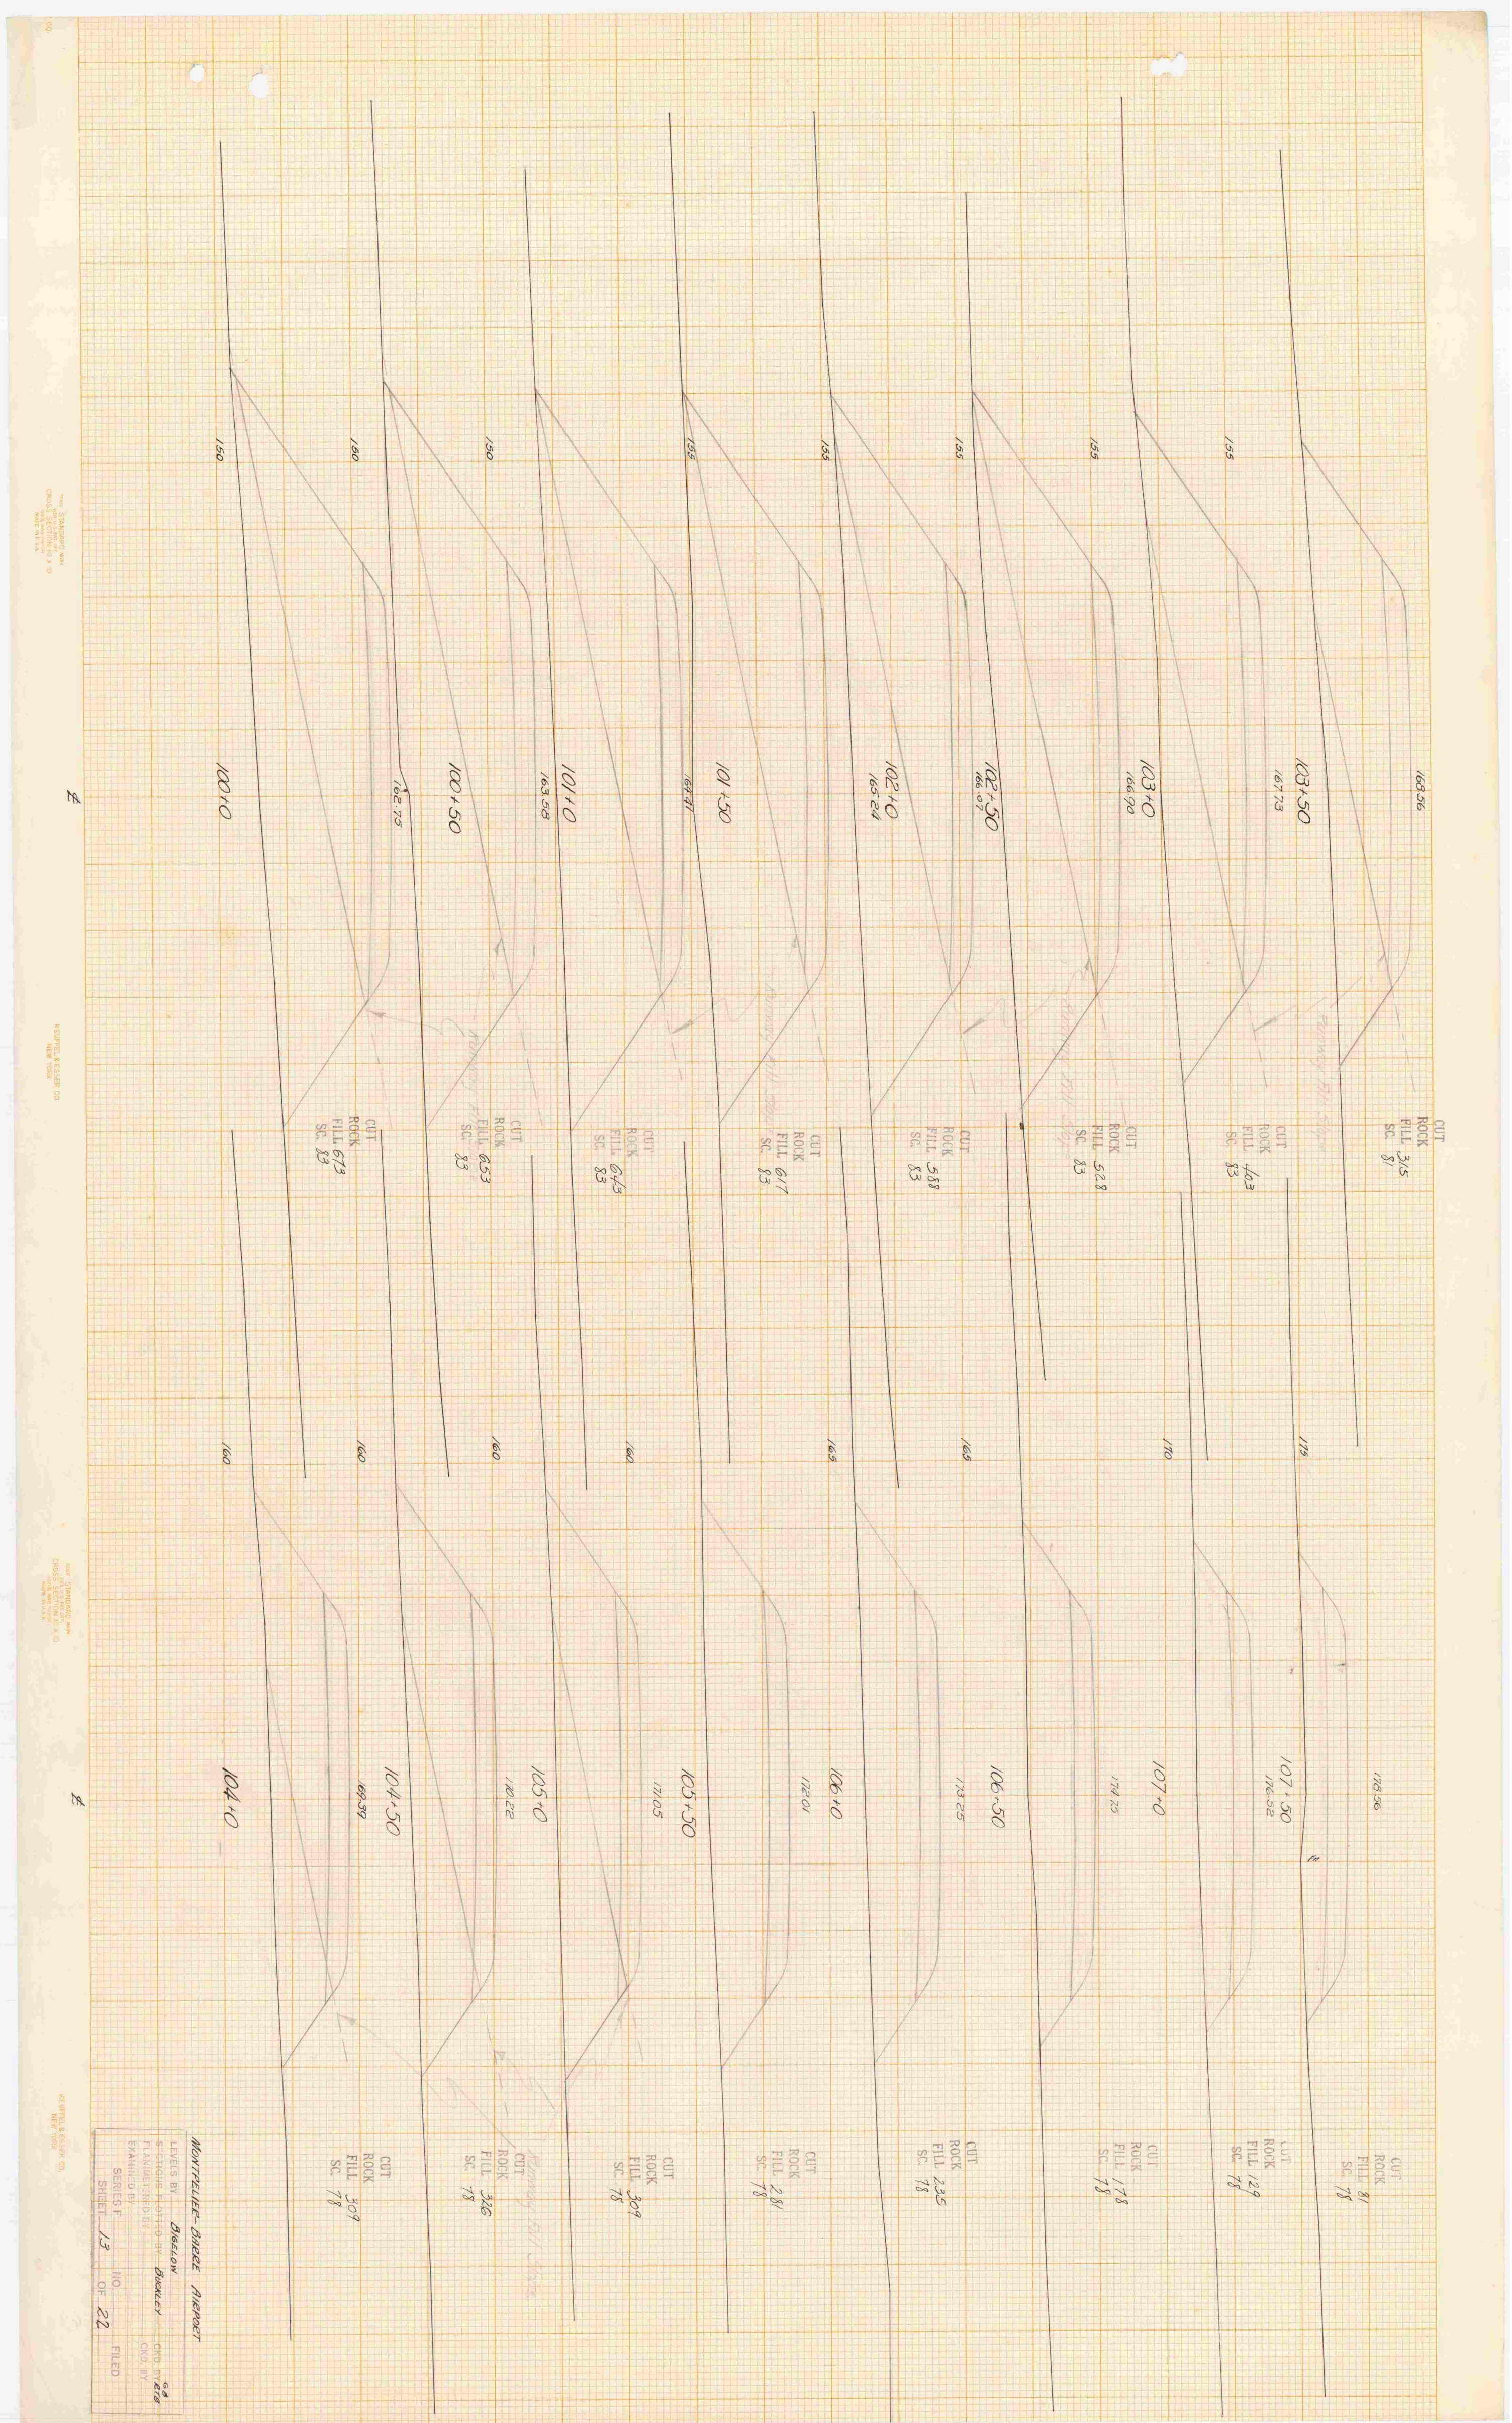 168.56
103+50
155
CUT
ROCK
FILL 315
SC. 81
167.73
103+0
155
CUT
ROCK
FILL 403
SC. 83
166.90
102+50
155
CUT
ROCK
FILL 528
SC. 83
166.07
102+0
155
CUT
ROCK
FILL 588
SC. 83
165.24
101+50
155
CUT
ROCK
FILL 617
SC. 83
164.41
101+0
150
CUT
ROCK
FILL 643
SC. 83
163.58
100+50
150
CUT
ROCK
FILL 653
SC. 83
162.75
100+0
150
CUT
ROCK
FILL 673
SC. 83
Runway Fill Slope
Runway Fill Slope
℄
178.56
107+50
175
CUT
ROCK
FILL 81
SC. 78
176.52
107+0
170
CUT
ROCK
FILL 129
SC. 78
174.75
106+50
165
CUT
ROCK
FILL 178
SC. 78
173.25
106+0
165
CUT
ROCK
FILL 235
SC. 78
172.01
105+50
160
CUT
ROCK
FILL 281
SC. 78
171.05
105+0
160
CUT
ROCK
FILL 309
SC. 78
170.22
104+50
160
CUT
ROCK
FILL 326
SC. 78
169.39
104+0
160
CUT
ROCK
FILL 309
SC. 78
℄
MONTPELIER-BARRE AIRPORT
LEVELS BY BIGELOW
SECTIONS PLOTTED BY BUCKLEY CKD. BY
PLANIMETERED BY CKD. BY
EXAMINED BY
SERIES F NO. FILED
SHEET 13 OF 22
STANDARD
CROSS SECTION 10 X 10
KEUFFEL & ESSER CO.
NEW YORK
STANDARD
CROSS SECTION 10 X 10
KEUFFEL & ESSER CO.
NEW YORK